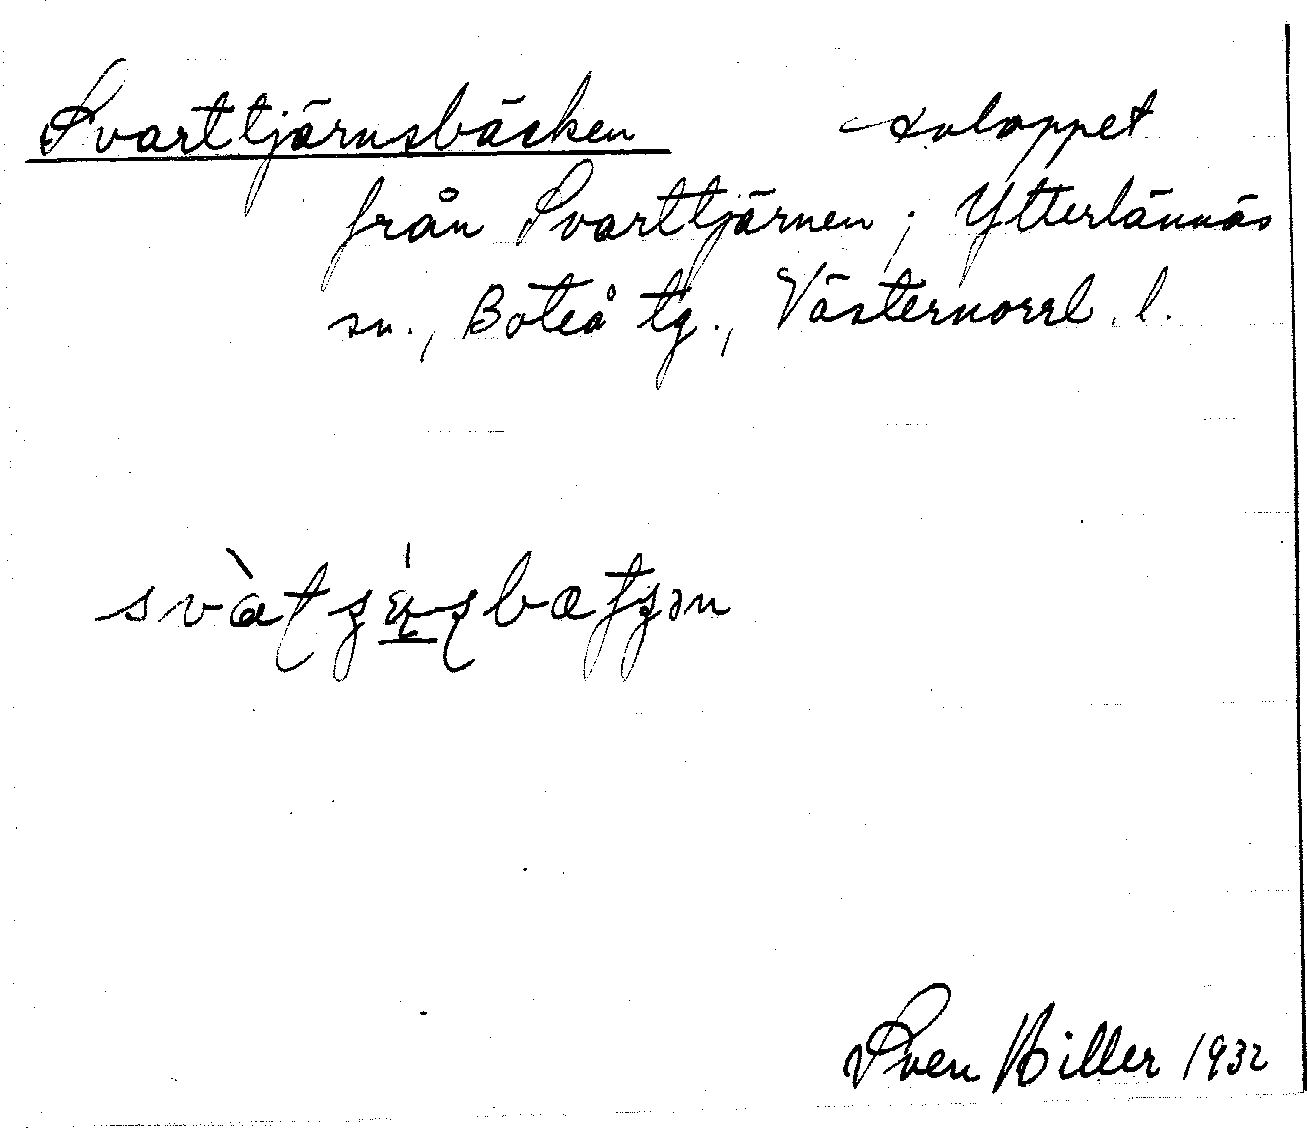 Svarttjärnsbäcken avloppet
från Svarttjärnen; Ytterlännäs
sn., Boteå tg., Västernorrl. l.
Sven Hiller 1932